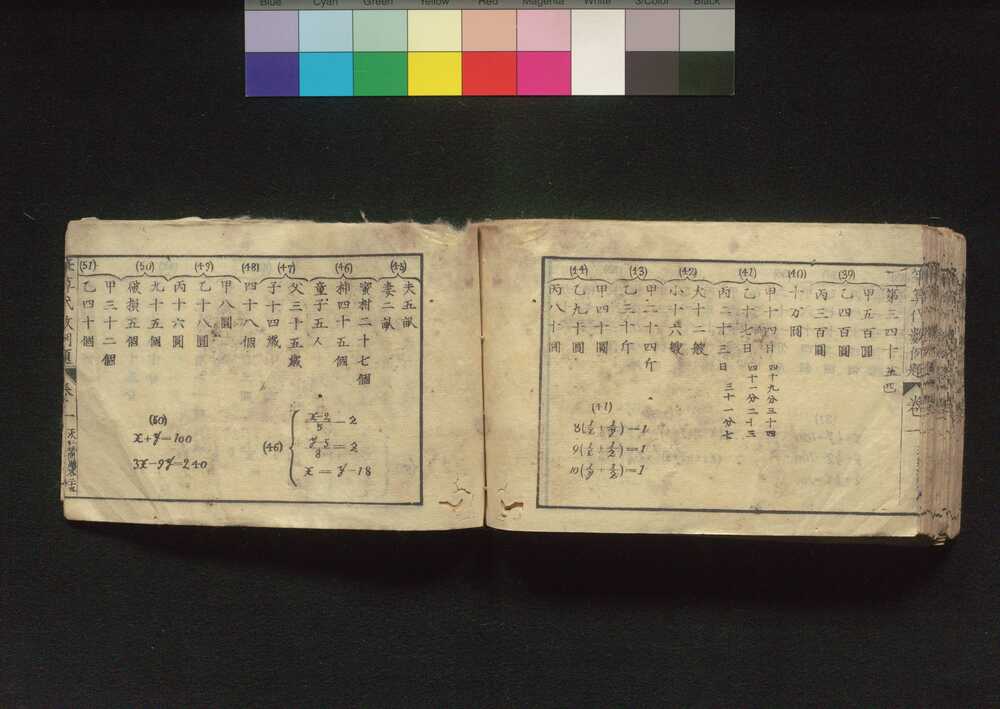 Blue Cyan Green Yellow Red Magenta White 3/Color Black
筆算代數例題 卷一
第三四十五匹
(39)
甲五百圓
乙四百圓
丙三百圓
(40)
十万圓
(41)
甲十四日 四十九分三十四
乙十七日 四十一分二十三
丙二十三日 三十一分七
(42)
大十二艘
小十六艘
(43)
甲二十四斤
乙三十斤
(44)
甲四十圓
乙九十圓
丙八十圓
(41)
8(1/x+1/y)=1
9(1/x+1/z)=1
10(1/y+1/z)=1
(45)
夫五畝
妻二畝
(46)
蜜柑二十七個
柿四十五個
童子五人
(47)
父三十五歲
子十四歲
(48)
四十八個
(49)
甲八圓
乙十八圓
丙十六圓
(50)
九十五個
破損五個
(51)
甲三十二個
乙四十個
(46)
x-2/5=2
y-5/8=2
x=y-18
(50)
x+y=100
3x-9y=240
筆算代數例題 卷一